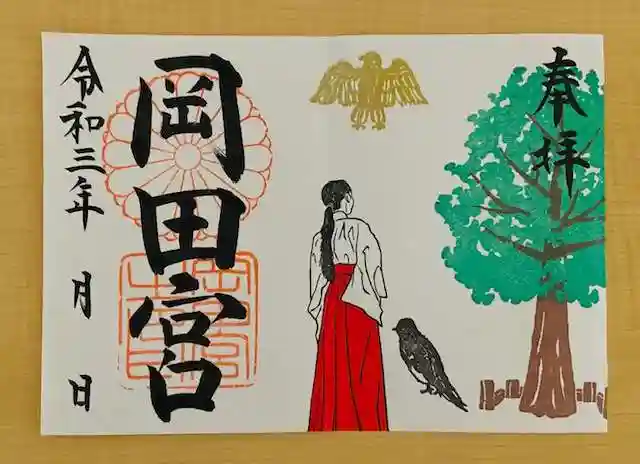 奉拝
岡田宮
令和三年 月 日